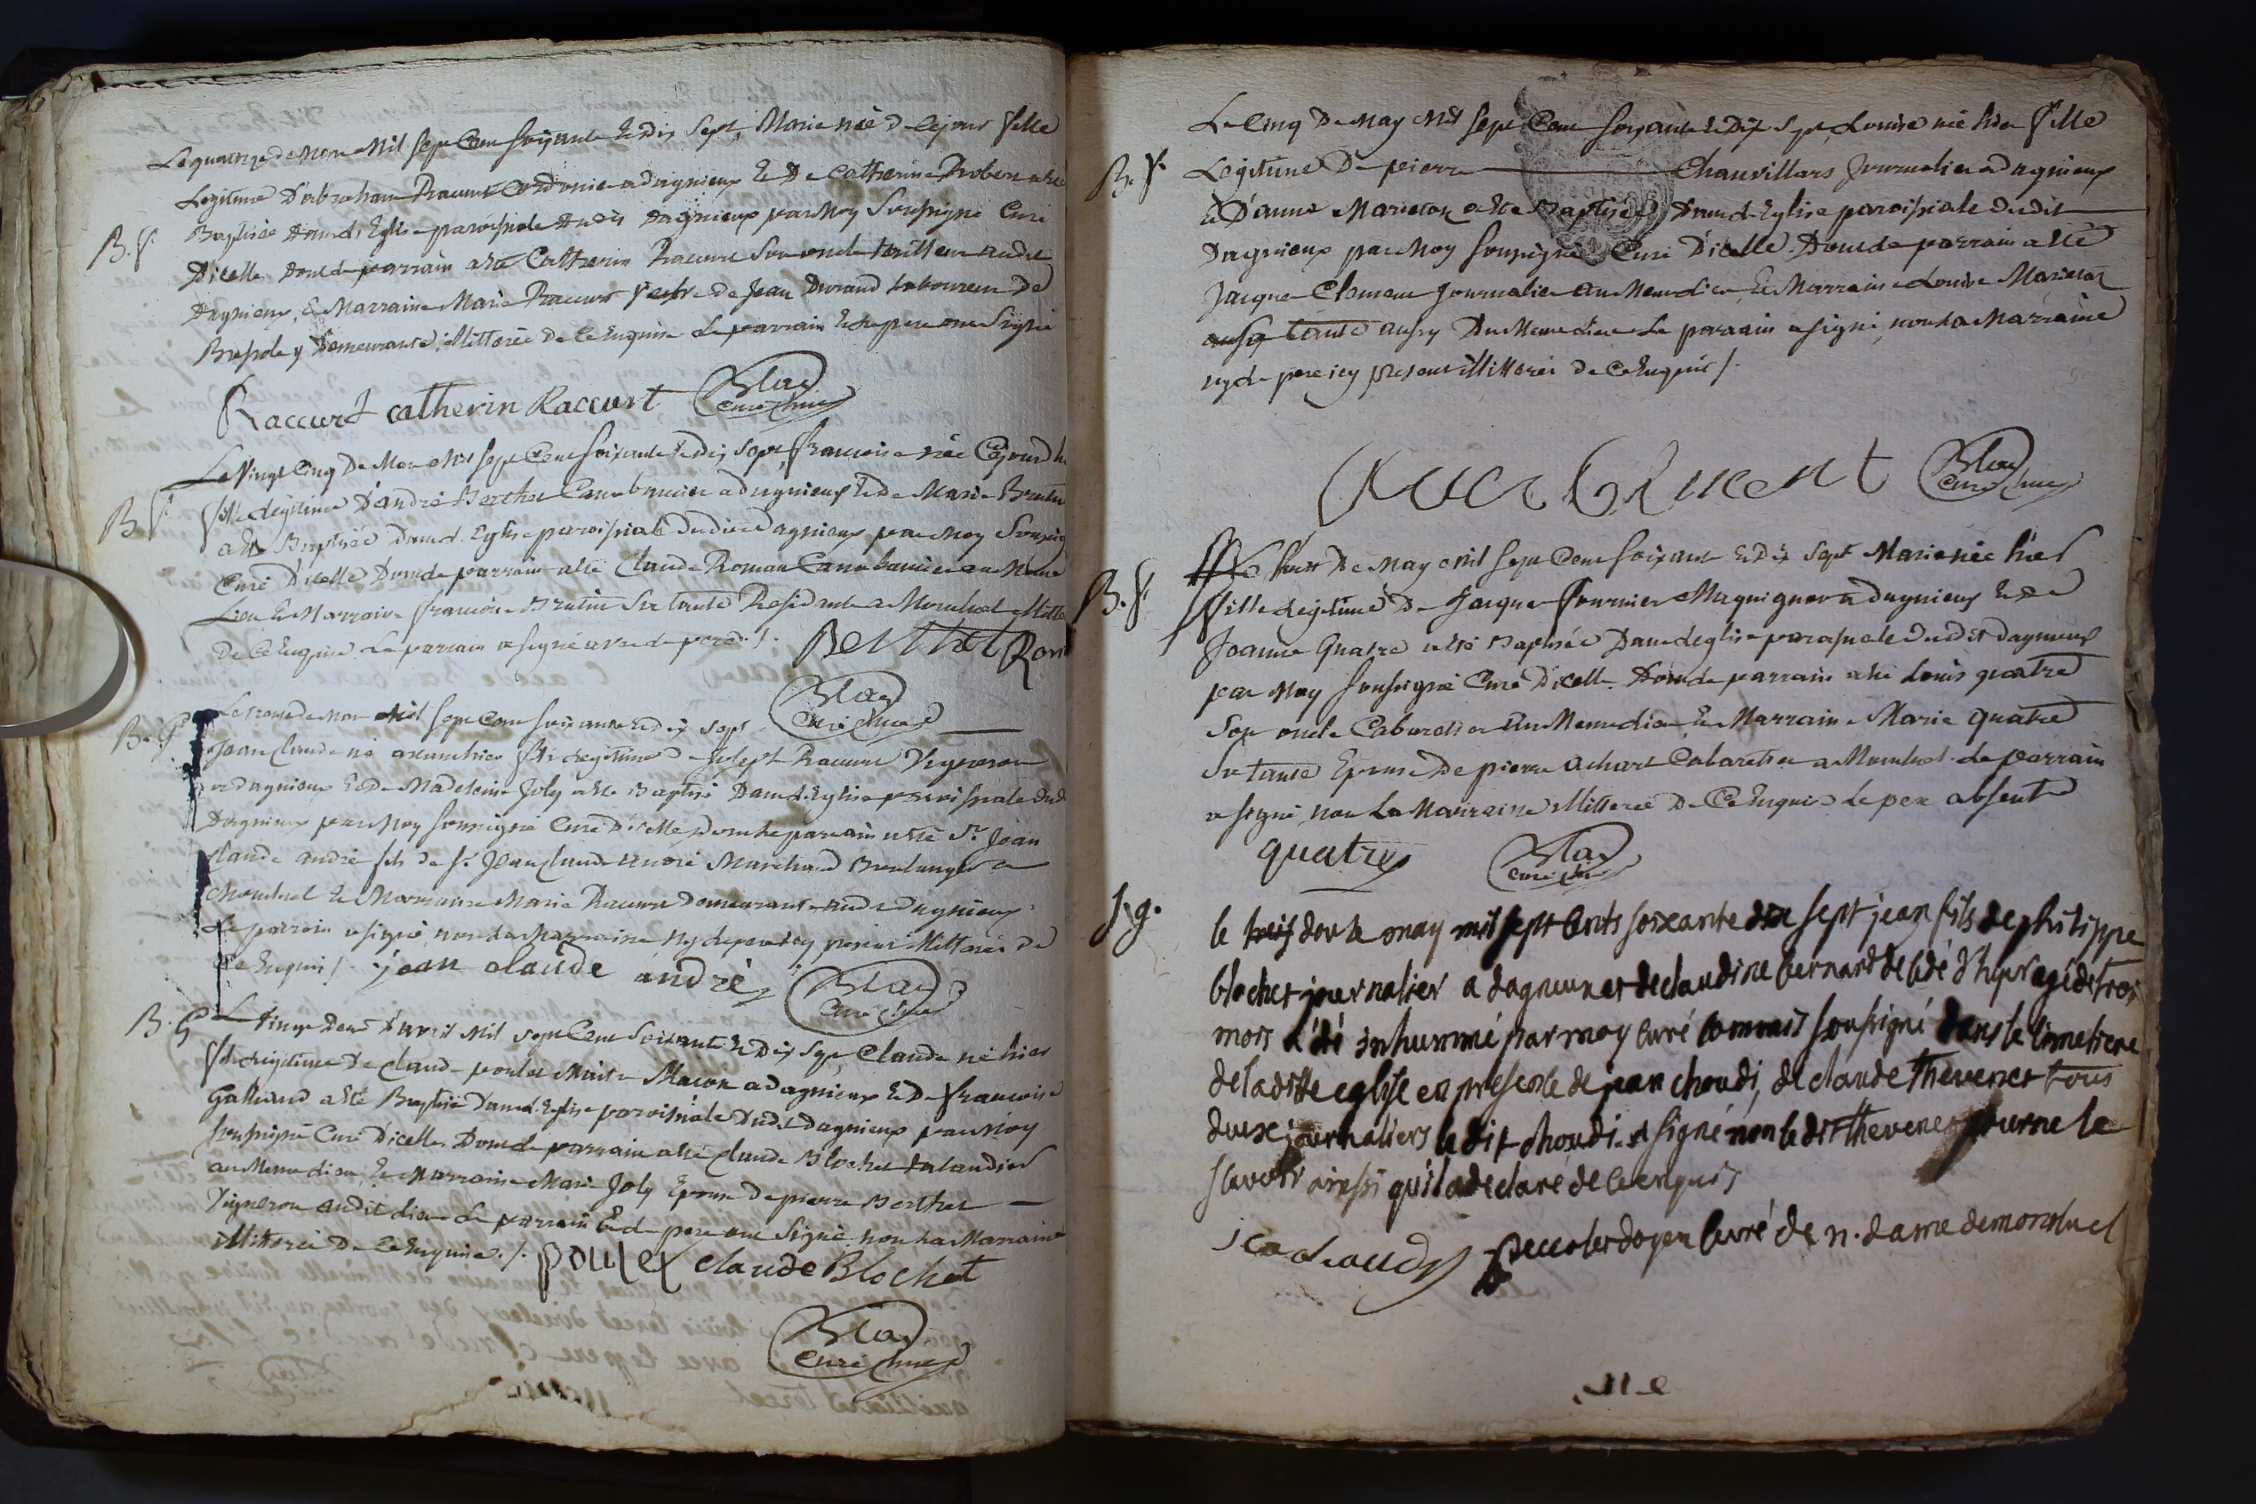 Le quatorze de Mars Mil Sept Cent soixante et dix sept, Marie née de ce jour fille
Legitime d'abraham Raccurt Cordonier a dagnieux et De Catherine Robert a été
B. f. Baptisée dans l'Eglise paroissiale dudit dagnieux par Moy Soussigné Curé
D'icelle dont le parrain a été Catherin Raccurt Son oncle tailleur audit
Dagnieux, et Marraine Marie Raccurt veufve de Jean Durand Laboureur De
y Demeurante, illitterée de ce Enquise Le parrain et le pere ont Signé
Raccurt catherin Raccurt Blad
Curé
Le Vingt Cinq De Mars Mil Sept Cent soixante et dix Sept, francoise née Cejourd'hu
B. f. fille Legitime D'andré Berthet a dagnieux et De Marie
a été Baptisée Dans l'Eglise paroissiale dudit dagnieux par Moy Soussig
Curé D'icelle Dont le parrain a été Claude Roman au Meme
Lieu et Marraine francoise Sa tante Residante a Montluel
De Ce Enquise Le parrain a signé avec le pere ./.
Berthet Rom
Blad
Curé
Le de Mars Mil Sept Cent soixante et dix sept
B. G. Jean Claude né avanthier fils Legitime de Joseph Raccurt Vigneron
a dagnieux et De Madeleine Joly a été Baptisé Dans l'Eglise paroissiale dud
Dagnieux par Moy soussigné Curé D'icelle, Dont le parrain a été Sr. Jean
Claude andré fils de Sr. Jean Claude andré Marchand Boulanger a
Montluel et Marraine Marie Raccurt Demeurante aud. Dagnieux.
Le parrain a signé, non la Marraine ny le pere icy present illitterés de
ce Enquis /. jean claude andré Blad
Curé
B. G Le Vingt Deux D'avril Mil Sept Cent Soixante et Dix Sept, Claude né hier
fils Legitime De Claude poulet Maitre Macon a dagnieux et De francoise
Galland a été Baptisé Dans l'Eglise paroissiale Dudit Dagnieux par Moy
soussigné Curé D'icelle, Dont le parrain a été Claude Blochet
au Meme Lieu, et Marraine Marie Joly Epouse De pierre Berthet
Vigneron audit Lieu Le parrain et le pere ont Signé non la Marraine
illitterée De Ce Enquise. /. poulet claude Blochet
Blad
Curé
Le Cinq De May Mil Sept Cent soixante et Dix Sept, Louise née hier fille
B. f. Legitime De pierre Chanvillars Journalier a Dagnieux
et D'anne Marieton a été Baptisée Dans l'Eglise paroissiale dudit
Dagnieux par Moy soussigné Curé D'icelle. Dont le parrain a été
Jacque Clement Journalier au Meme Lieu, et Marraine Louise Marieton
tante aussy Du Meme Lieu Le parrain a signé, non la Marraine
ny le pere icy present illitterés De Ce Enquis /.
Clement Blad
Curé
Le huit De May Mil Sept Cent soixante et Dix Sept Marie née hier
B. f. fille Legitime De Jacque fournier Maquignon a Dagnieux et De
Jeanne Quatre a été Baptisée Dans l'eglise paroissiale Dudit Dagnieux
par Moy soussigné Curé D'icelle. Dont le parrain a été Louis quatre
Son oncle Cabaretier Du Meme Lieu, et Marraine Marie quatre
Sa tante Epouse De pierre achart Cabaretier a Montluel. Le parrain
a signé, non La Marraine illitterée De Ce Enquise Le pere absent
quatre Blad
Curé
S. g. le douze may mil sept cents soixante dix sept jean fils de philippe
blochet journalier a dagneux et de claudine bernard decedé d'hyer agé de trois
mois a été inhummé par moy curé commis soussigné dans le cimetiere
de la ditte eglise en presence de jean choudi, de claude Thevenet tous
deux journaliers le dit choudi a signé non le dit Thevenet pour ne le
scavoir ainssi qu'il a declaré de ce enquis
jean choudy doyen curé de n. dame de montluel